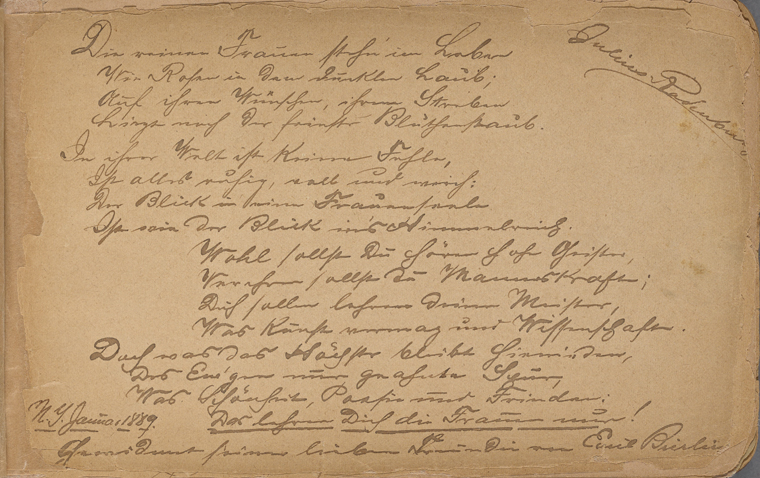 Julius Rodenberg
Die reinen Frauen steh'n im Leben
Wie Rosen in dem dunklen Laub;
Auf ihren Wünschen, ihrem Streben
Liegt noch der feinste Blüthenstaub.
In ihrer Welt ist keine Fehle,
Ist alles ruhig, voll und weich:
Der Blick in eine Frauenseele
Ist wie der Blick in's Himmelreich.
Wohl sollst Du hören hohe Geister,
Verehren sollst du Manneskraft;
Dich sollen lehren deine Meister,
Was Kunst vermag und Wissenschaft.
Doch was das Höchste bleibt hienieden,
Des Ew'gen nur geahnte Spur,
Was Schönheit, Poesie und Frieden:
Das lehren Dich die Frauen nur!
N.Y. Januar 1889.
Gewidmet seiner lieben Freundin von Emil